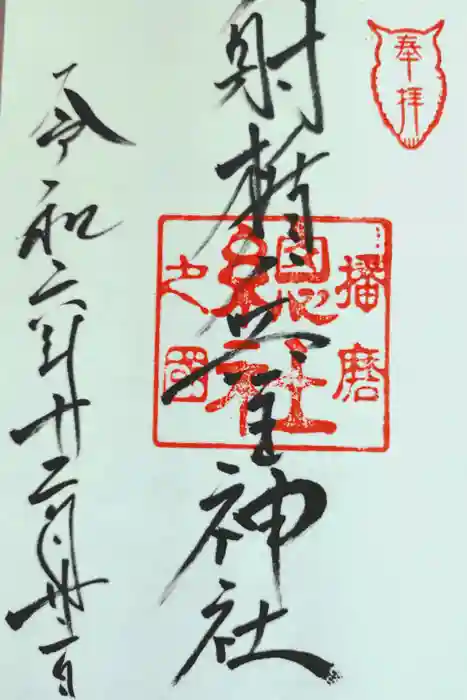 奉拝
射楯兵主神社
播磨
之國
總社
令和六年十二月卅一日